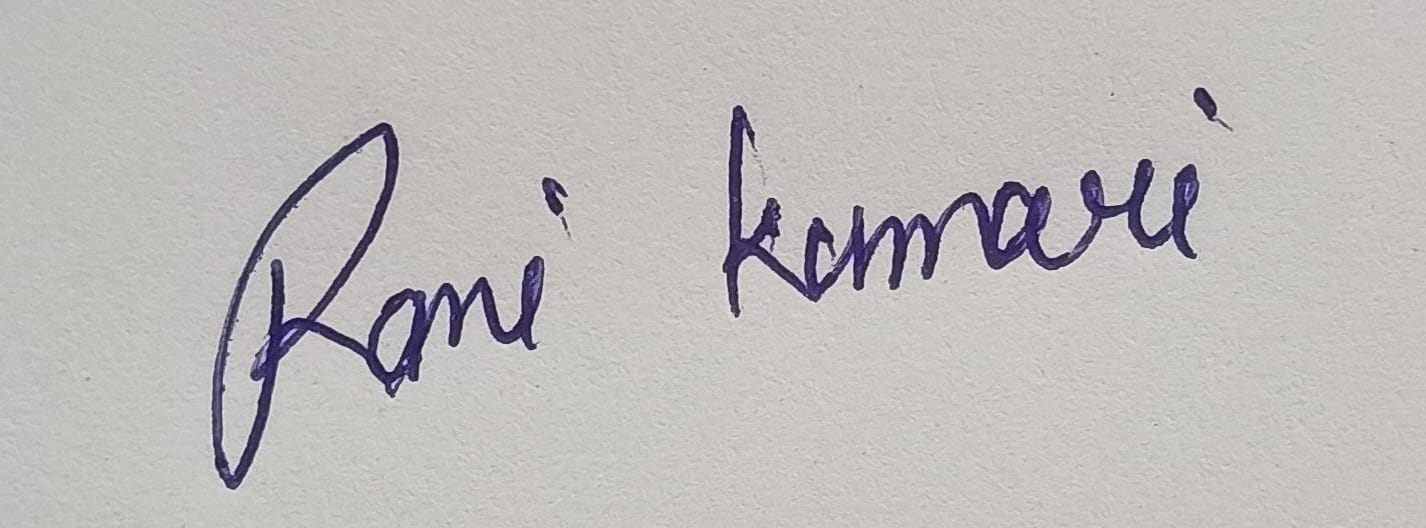 Rani kumari